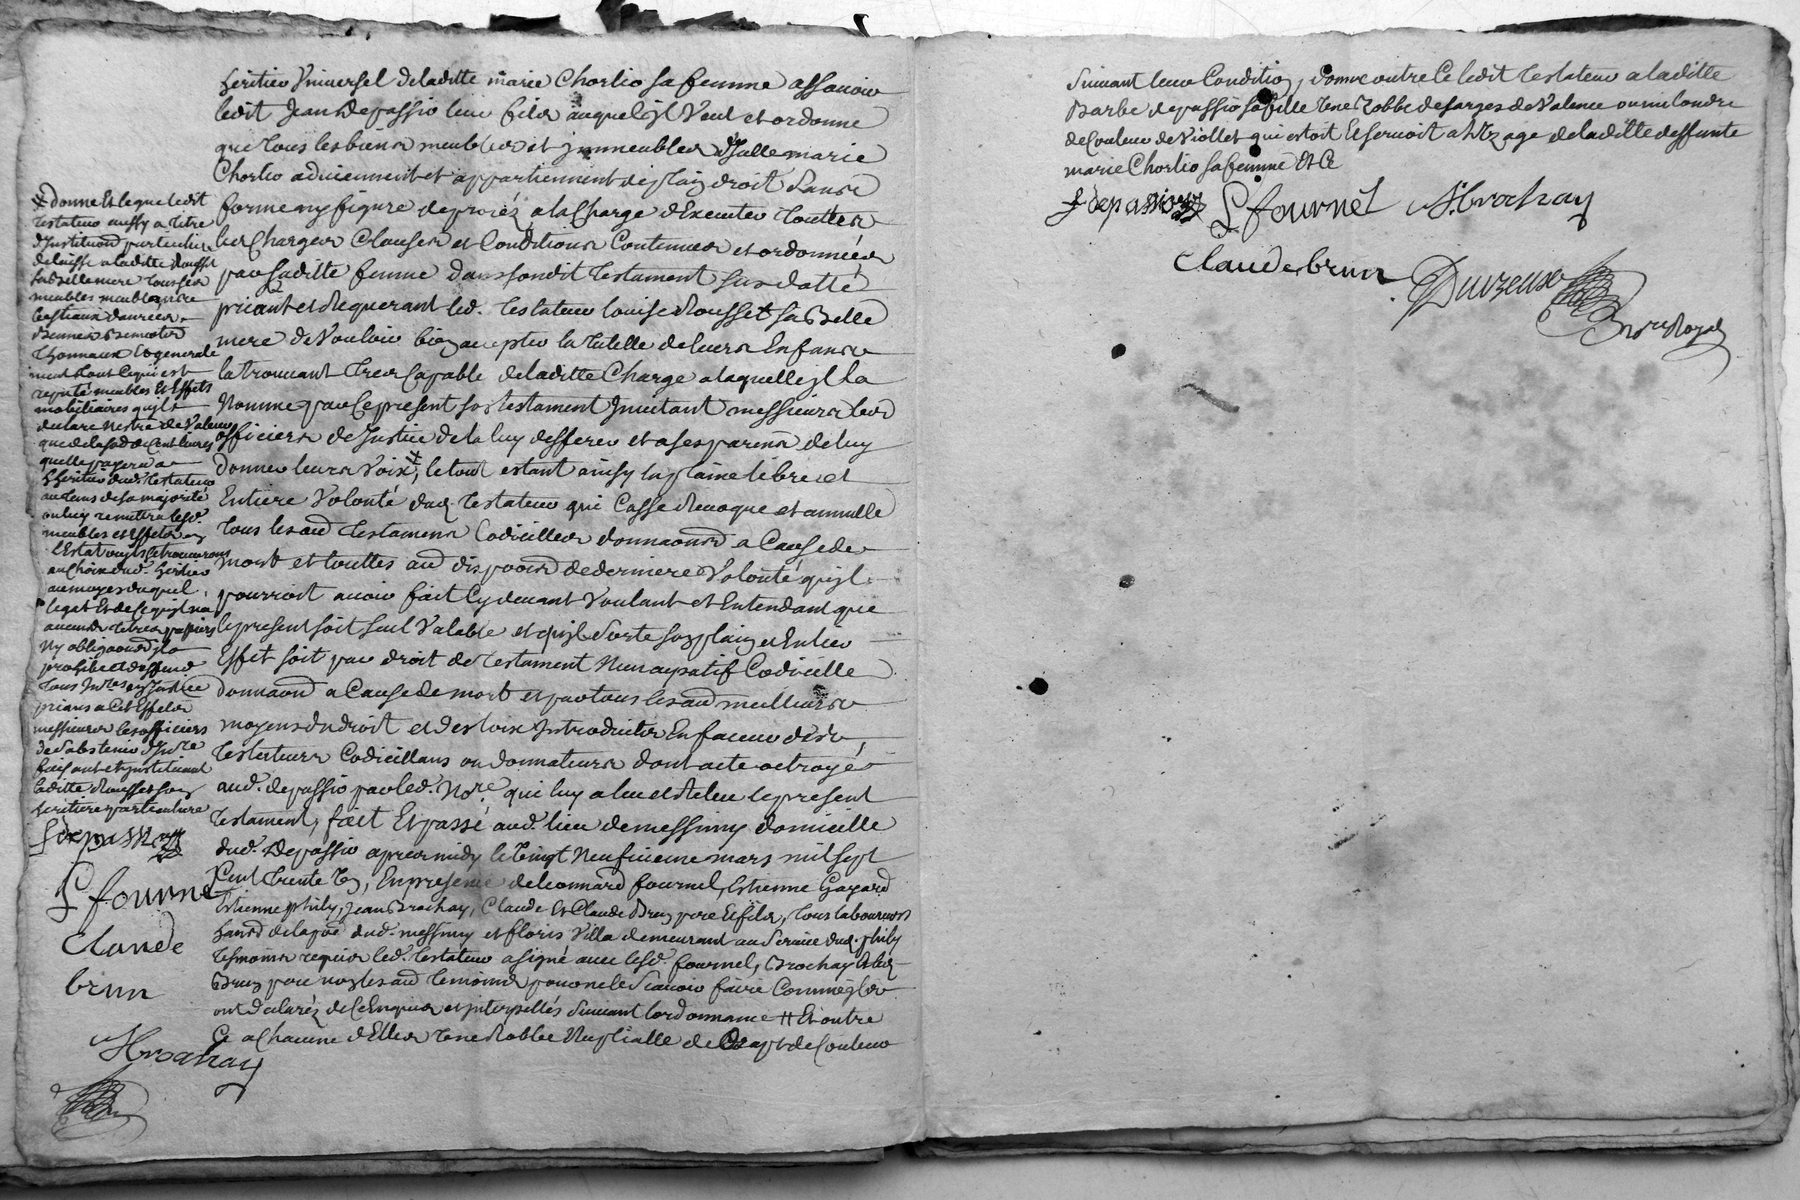 heritier Universel deladitte marie Chorlio sa femme assavoir
ledit Jean Depassio leur fils auquel jl Veut et ordonne
que tous les biens meubles et jmmeubles d'jcelle marie
Chorlio adviennent et appartiennent de plain droit sans
forme ny figure de procéz a la Charge d'Executer touttes
les Charges Clauses et Conditions Contenues et ordonnées
par saditte femme dans sondit testament sus datté
priant et Requerant led. testateur louise Rousset sa Belle
mere de Vouloir bien accepter la tutelle de leurs Enfans
la trouvant tres Capable deladitte Charge a laquelle jl la
Nomme par le present son testament Jnvitant messieurs les
officiers de Justice de la luy defferer et a ses parens de luy
donner leurs Voix #, le tout estant ainsy la plaine libre et
Entiere Volonté dud. testateur qui Casse Revoque et annulle
tous les aud testamens Codicilles donnaons a Cause de
mort et touttes aud dispoons de derniere Volonté qu'jl
pourroit avoir fait Cy devant Voulant et Entendant que
le present soit seul Valable et qu'jl sorte son plain et Entier
Effet soit par droit de testament Nuncupatif Codicille
donnaon a Cause de mort et par tous les aud meilleurs
moyens du droit et des loix Introduites En faveur des
testateurs Codicillans ou donnateurs dont acte octroyé
aud. depassio par led. Nore. qui luy a leu et Releu le present
testament, fait Et passé aud. lieu de messimy domicille
dud. Depassio apres midy le Vingt Neufvieme mars mil sept
Cent trente , En presence de leonnard fournel, Estienne Gayard
Estienne phily, Jean Brochay, Claude Et Claude Brun pere Et fils, tous laboureurs
dud. messimy et floris Villa demeurant au service dud. phily
tesmoins requis led. testateur a signé avec lesd. fournel, Brochay Et led.
Brun pere non les aud temoins pour ne le scavoir faire Comme jls
ont declaréz de Ce Enquis et jnterpellés suivant lordonnance # Et outre
Ce a Chacune d'Elles Robbe Nuptialle de de Couleur
# donne Et legue ledit
testateur aussy a titre
d'Institution particuliere
delaisse a laditte Rousset
sa Belle mere tous ses
meubles meublans
bestiaux denrees
thonneaux Et generale
ment tout ce qui est
reputé meubles Et Effets
mobiliaires qu'jl
declare n'estre de Valeur
que de la so? de Cent livres
quelle payera a
Lheritier dud. testateur
au tems de sa majorité
ou luy remettra lesd.
meubles et Effets en
l'Estat qu'jls se trouveront
au Choix dud. heritier
au moyen duquel
legat Et de ce qu'jl n'a
aucuns titres papiers
Ny obligaons jl a
prohibé et deffend
tous Invres en Justice
priant a Cet Effet
messieurs les officiers
de s'abstenir d'Inre
laditte Rousset son
heritiere particuliere
J depassio
L fournel
Claude
brun
J brochay
suivant leur Condition, donne outre Ce ledit testateur a laditte
Barbe depassio sa fille Une Robbe de sarges de Valence ou milandre
de Couleur de Viollet qui estoit Et servoit a l'Uzage deladitte deffunte
marie Chorlio sa femme Et Ce
J depassio L fournel J brochay
Claude brun
Duvreux
Nore Royal